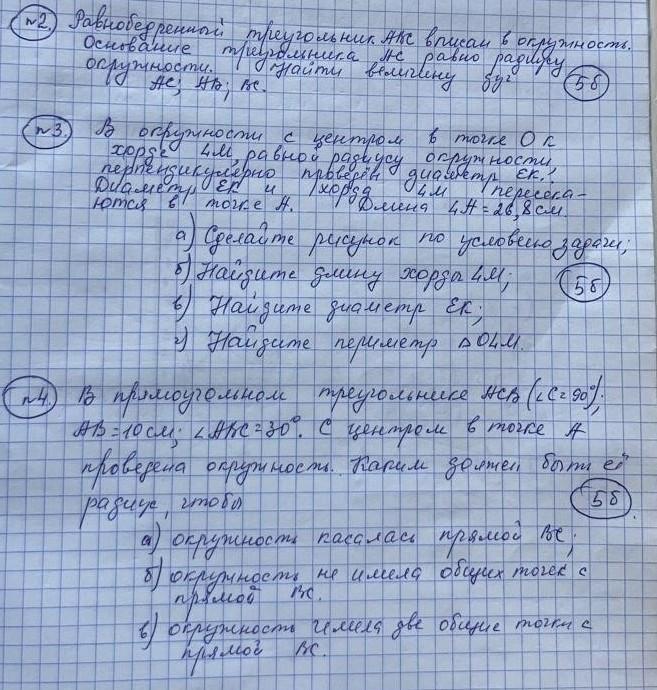 №2. Равнобедренный треугольник АВС вписан в окружность.
Основание треугольника АС равно радиусу
окружности. Найти величину дуг
АС; АВ; ВС. 5б
№3. В окружности с центром в точке О к
хорде ЧМ, равной радиусу окружности,
перпендикулярно проведён диаметр ЕК.
Диаметр ЕК и хорда ЧМ пересека-
ются в точке А. Длина ЧА = 26,8 см.
а) Сделайте рисунок по условию задачи;
б) Найдите длину хорды ЧМ; 5б
в) Найдите диаметр ЕК;
г) Найдите периметр ΔОЧМ.
№4. В прямоугольном треугольнике АСВ (∠С = 90°);
АВ = 10 см; ∠АВС = 30°. С центром в точке А
проведена окружность. Каким должен быть её
радиус, чтобы 5б
а) окружность касалась прямой ВС;
б) окружность не имела общих точек с
прямой ВС.
в) окружность имела две общие точки с
прямой ВС.